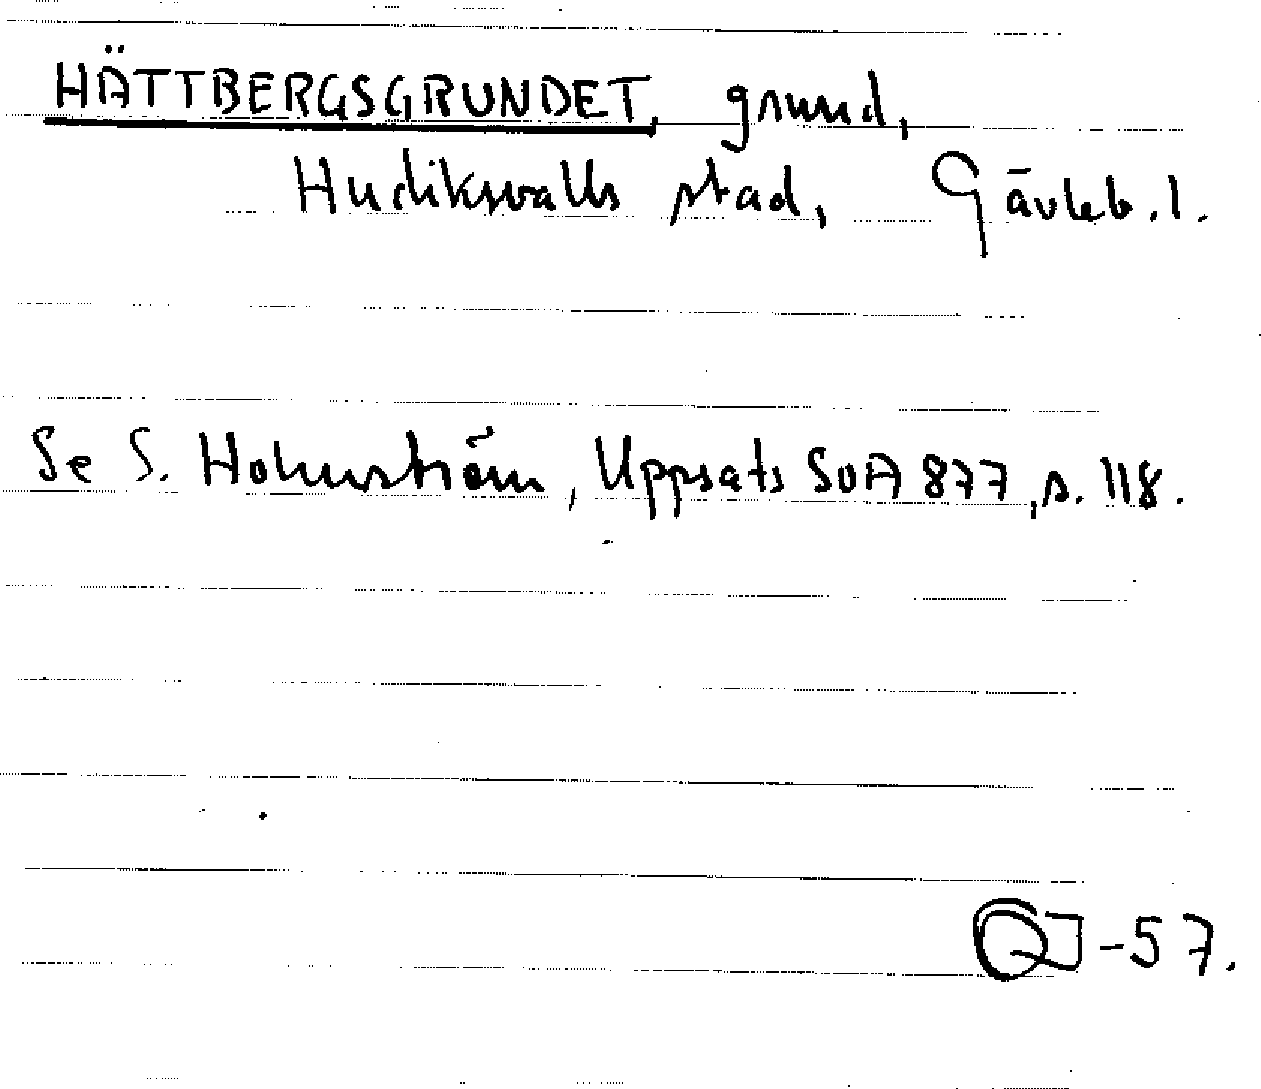 HÄTTBERGSGRUNDET, grund,
Hudiksvalls stad, Gävleb. l.
Se S. Holmström, Uppsats SOA 877, s. 118.
-57.